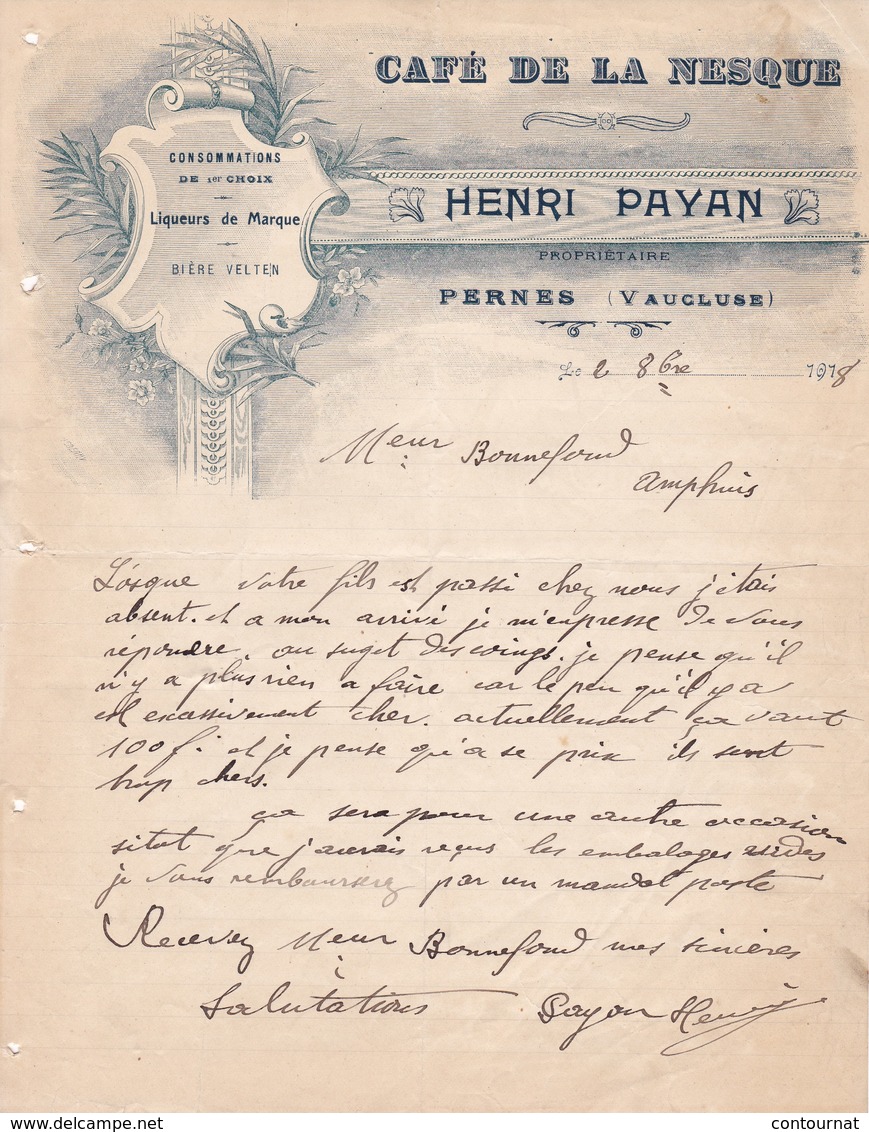 CAFÉ DE LA NESQUE
CONSOMMATIONS
DE 1er CHOIX
Liqueurs de Marque
BIÈRE VELTEN
HENRI PAYAN
PROPRIÉTAIRE
PERNES (VAUCLUSE)
Le 2 8bre 1918
Meur Bonnefond
Amphuis
Losque votre fils est passé chez nous j'étais
absent. et a mon arrivé je m'empresse de vous
répondre. au suget des coings. je pense qu'il
n'y a plus rien a faire car le peu qu'il y a
est excassivement cher. actuellement ça vaut
100f. et je pense qu'a se prix ils sont
trop chers.
ça sera pour une autre occasion
sitot que j'aurais reçus les embalages vides
je vous rembourserez par un mandat poste
Recevez Meur Bonnefond mes sincères
Salutations Payan Henri
www.delcampe.net
contournat